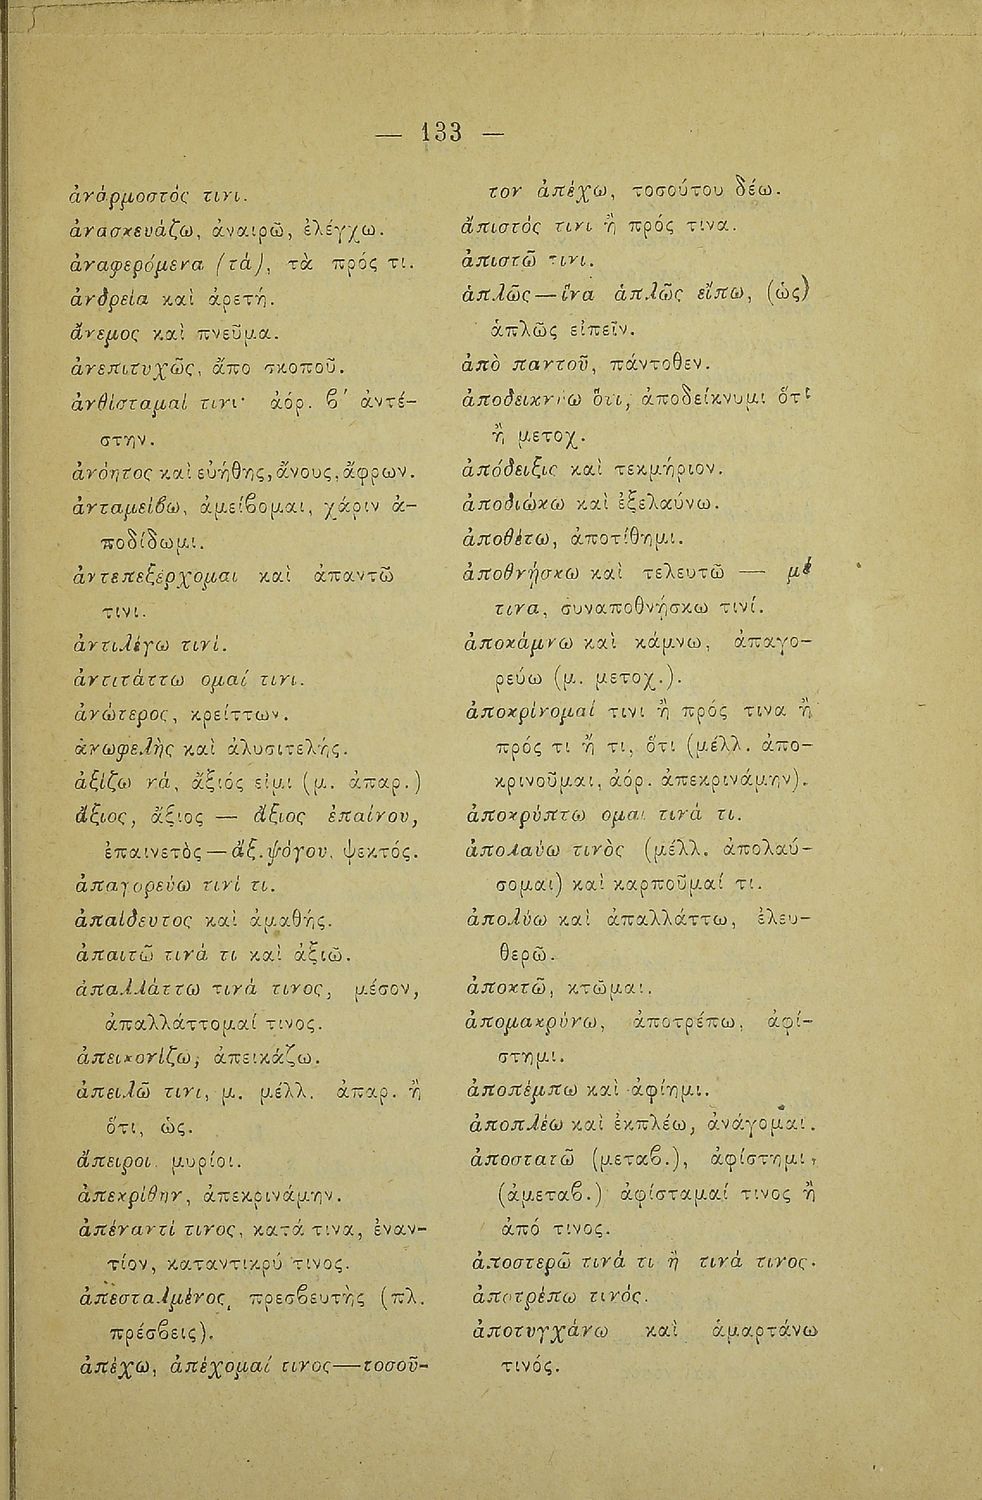 — 133 —
ἀνάρμοστός τινι.
ἀνασκευάζω, ἀναιρῶ, ἐλέγχω.
ἀναφερόμενα (τά), τὰ πρός τι.
ἀνδρεία καὶ ἀρετή.
ἄνεμος καὶ πνεῦμα.
ἀνεπιτυχῶς, ἄπο σκοποῦ.
ἀνθίσταμαί τινι· ἀόρ. ϐ΄ ἀντέ-
στην.
ἀνόητος καὶ εὐήθης, ἄνους, ἄφρων.
ἀνταμείϐω, ἀμείϐομαι, χάριν ἀ-
ποδίδωμι.
ἀντεπεξέρχομαι καὶ ἀπαντῶ
τινι.
ἀντιλέγω τινί.
ἀντιτάττω ομαί τινι.
ἀνώτερος, κρείττων.
ἀνωφελὴς καὶ ἀλυσιτελής.
ἀξίζω νά, ἄξιός εἰμι (μ. ἀπαρ.)
ἄξιος, ἄξιος — ἄξιος ἐπαίνου,
ἐπαινετὸς — ἄξ. ψόγου, ψεκτός.
ἀπαγορεύω τινί τι.
ἀπαίδευτος καὶ ἀμαθής.
ἀπαιτῶ τινά τι καὶ ἀξιῶ.
ἀπαλλάττω τινά τινος, μέσον,
ἀπαλλάττομαί τινος.
ἀπεικονίζω, ἀπεικάζω.
ἀπειλῶ τινι, μ. μέλλ. ἀπαρ. ἢ
ὅτι, ὡς.
ἄπειροι, μυρίοι.
ἀπεκρίθην, ἀπεκρινάμην.
ἀπέναντί τινος, κατά τινα, ἐναν-
τίον, καταντικρύ τινος.
ἀπεσταλμένος, πρεσϐευτὴς (πλ.
πρέσϐεις).
ἀπέχω, ἀπέχομαί τινος—τοσοῦ-
τον ἀπέχω, τοσούτου δέω.
ἄπιστός τινι ἢ πρός τινα.
ἀπιστῶ τινι.
ἁπλῶς — ἵνα ἁπλῶς εἴπω, (ὡς)
ἁπλῶς εἰπεῖν.
ἀπὸ παντοῦ, πάντοθεν.
ἀποδεικνύω ὅτι, ἀποδείκνυμι ὅτι
ἢ μετοχ.
ἀπόδειξις καὶ τεκμήριον.
ἀποδιώκω καὶ ἐξελαύνω.
ἀποθέτω, ἀποτίθημι.
ἀποθνήσκω καὶ τελευτῶ — μέ
τινα, συναποθνήσκω τινί.
ἀποκάμνω καὶ κάμνω, ἀπαγο-
ρεύω (μ. μετοχ.).
ἀποκρίνομαί τινι ἢ πρός τινα ἢ
πρός τι ἤ τι, ὅτι (μέλλ. ἀπο-
κρινοῦμαι, ἀόρ. ἀπεκρινάμην).
ἀποκρύπτω ομαι τινά τι.
ἀπολαύω τινὸς (μέλλ. ἀπολαύ-
σομαι) καὶ καρποῦμαί τι.
ἀπολύω καὶ ἀπαλλάττω, ἐλευ-
θερῶ.
ἀποκτῶ, κτῶμαι.
ἀπομακρύνω, ἀποτρέπω, ἀφί-
στημι.
ἀποπέμπω καὶ ἀφίημι.
ἀποπλέω καὶ ἐκπλέω, ἀνάγομαι.
ἀποστατῶ (μεταϐ.), ἀφίστημι,
(ἀμεταϐ.) ἀφίσταμαί τινος ἢ
ἀπό τινος.
ἀποστερῶ τινά τι ἢ τινά τινος.
ἀποτρέπω τινός.
ἀποτυγχάνω καὶ ἁμαρτάνω
τινός.